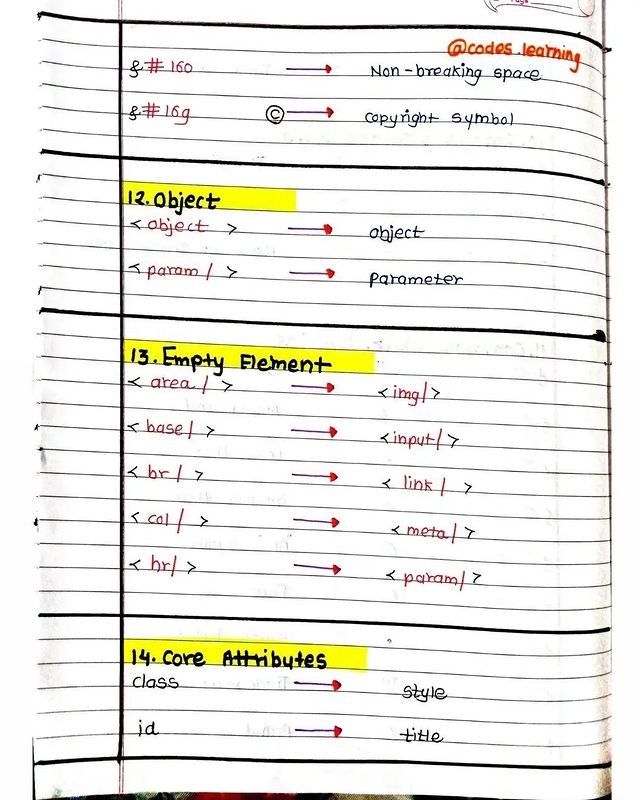 @codes.learning
&#160 → Non-breaking space
&#169 © → copyright symbol
12. Object
<object > → object
<param / > → parameter
13. Empty Element
<area / > → <img/>
<base/ > → <input/>
<br / > → <link / >
<col / > → <meta/>
<hr/ > → <param/>
14. Core Attributes
class → style
id → title